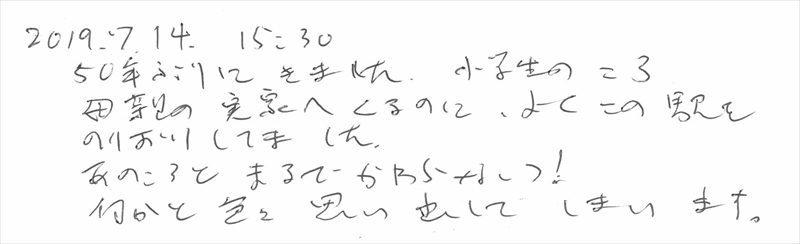 2019.7.14. 15:30
50年ぶりにきました. 小学生のころ
母親の実家へくるのに、よくこの駅を
のりおりしてました.
あのころとまるでかわらないっ!
何かと色々思い出してしまいます。